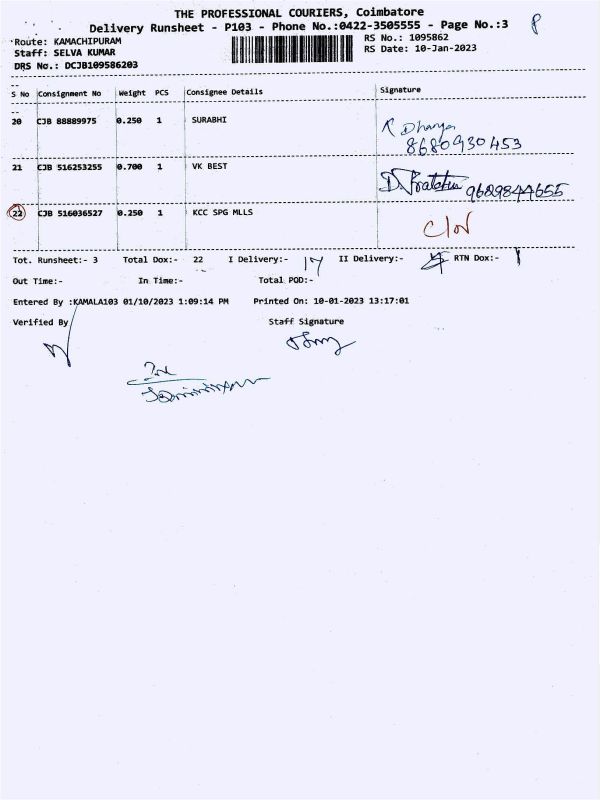 THE PROFESSIONAL COURIERS, Coimbatore
Delivery Runsheet - P103 - Phone No.:0422-3505555 - Page No.:3
Route: KAMACHIPURAM RS No.: 1095862
Staff: SELVA KUMAR RS Date: 10-Jan-2023
DRS No.: DCJB109586203
S No Consignment No Weight PCS Consignee Details Signature
20 CJB 88889975 0.250 1 SURABHI
8680930453
21 CJB 516253255 0.700 1 VK BEST
9689844655
22 CJB 516036527 0.250 1 KCC SPG MLLS
Tot. Runsheet:- 3 Total Dox:- 22 I Delivery:- 17 II Delivery:- RTN Dox:- 1
Out Time:- In Time:- Total POD:-
Entered By :KAMALA103 01/10/2023 1:09:14 PM Printed On: 10-01-2023 13:17:01
Verified By Staff Signature